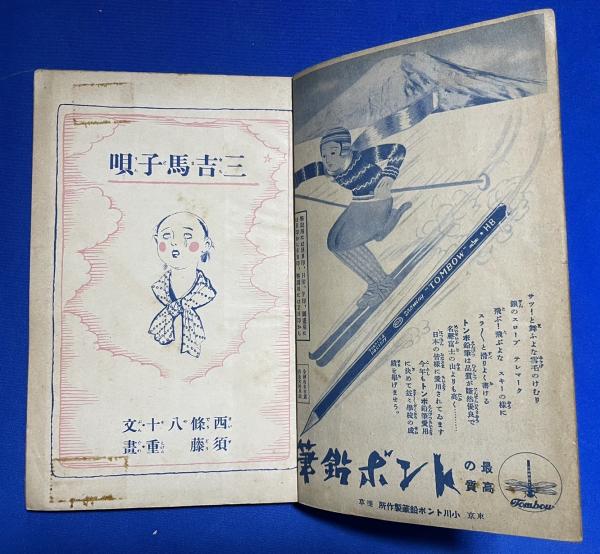 三吉馬子唄
西條八十文
須藤重畫
サツーと舞ふよな雪毛のけむり
銀のスロープ テレマーク
飛ぶ!飛ぶよな スキーの樣に
スラ〳〵と滑りよく書ける
トンボ鉛筆は品質が斷然優良で
名聲富士の山よりも高く………
日本の皆樣に愛用されてゐます
今年もトンボ鉛筆愛用
に決めて益々學校の成
績を擧げませう。
"TOMBOW" HB
最高
質の
トンボ鉛筆
Tombow
東京 小川トンボ鉛筆製作所 淺草